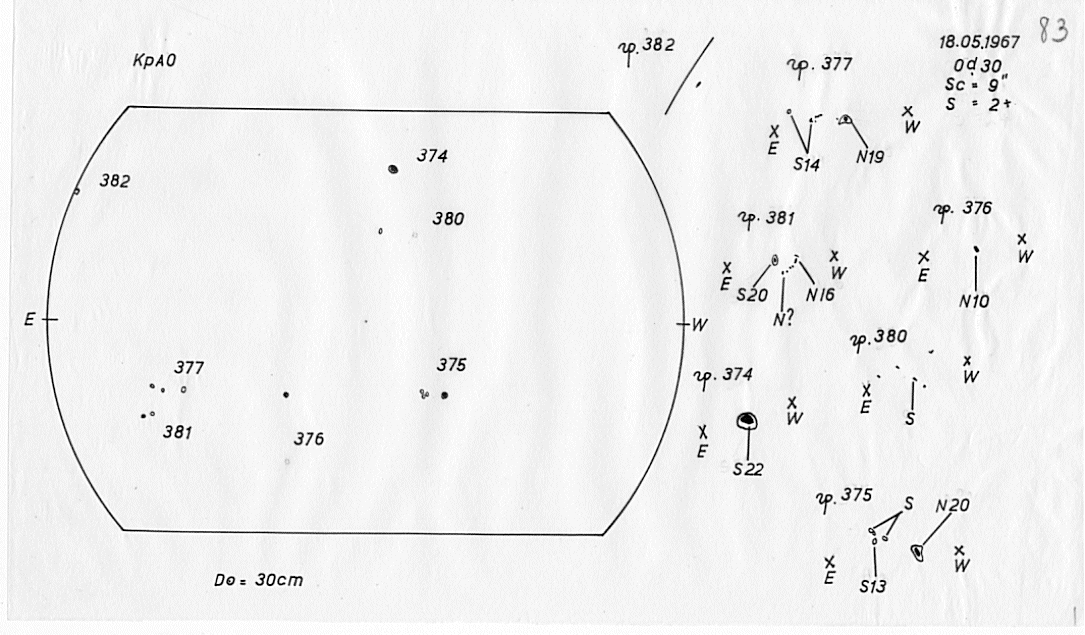 83
КрАО
гр. 382
18.05.1967
0d30
Sc = 9"
S = 2+
гр. 377
X E
X W
S14
N19
374
382
380
гр. 381
X E
X W
S20
N16
N?
гр. 376
X E
X W
N10
E
W
377
375
381
376
гр. 374
X E
X W
S22
гр. 380
X E
X W
S
гр. 375
S
N20
X E
X W
S13
D⊙ = 30cm